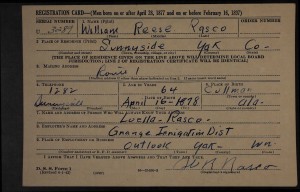 REGISTRATION CARD—(Men born on or after April 28, 1877 and on or before February 16, 1897)
SERIAL NUMBER 1. NAME (Print) ORDER NUMBER
William Reese Pasco
2. PLACE OF RESIDENCE (Print)
Sunnyside Yak Co-
[THE PLACE OF RESIDENCE GIVEN ON THE LINE ABOVE WILL DETERMINE LOCAL BOARD
JURISDICTION; LINE 2 OF REGISTRATION CERTIFICATE WILL BE IDENTICAL]
3. MAILING ADDRESS
Route 1
4. TELEPHONE 5. AGE IN YEARS 6. PLACE OF BIRTH
1282 64 Cullman
Sunnyside April 16-1878 Ala-
Luella- Rasco-
8. EMPLOYER'S NAME AND ADDRESS
Grange Irrigation Dist
Outlook Yak- Wn
I AFFIRM THAT I HAVE VERIFIED ABOVE ANSWERS AND THAT THEY ARE TRUE.